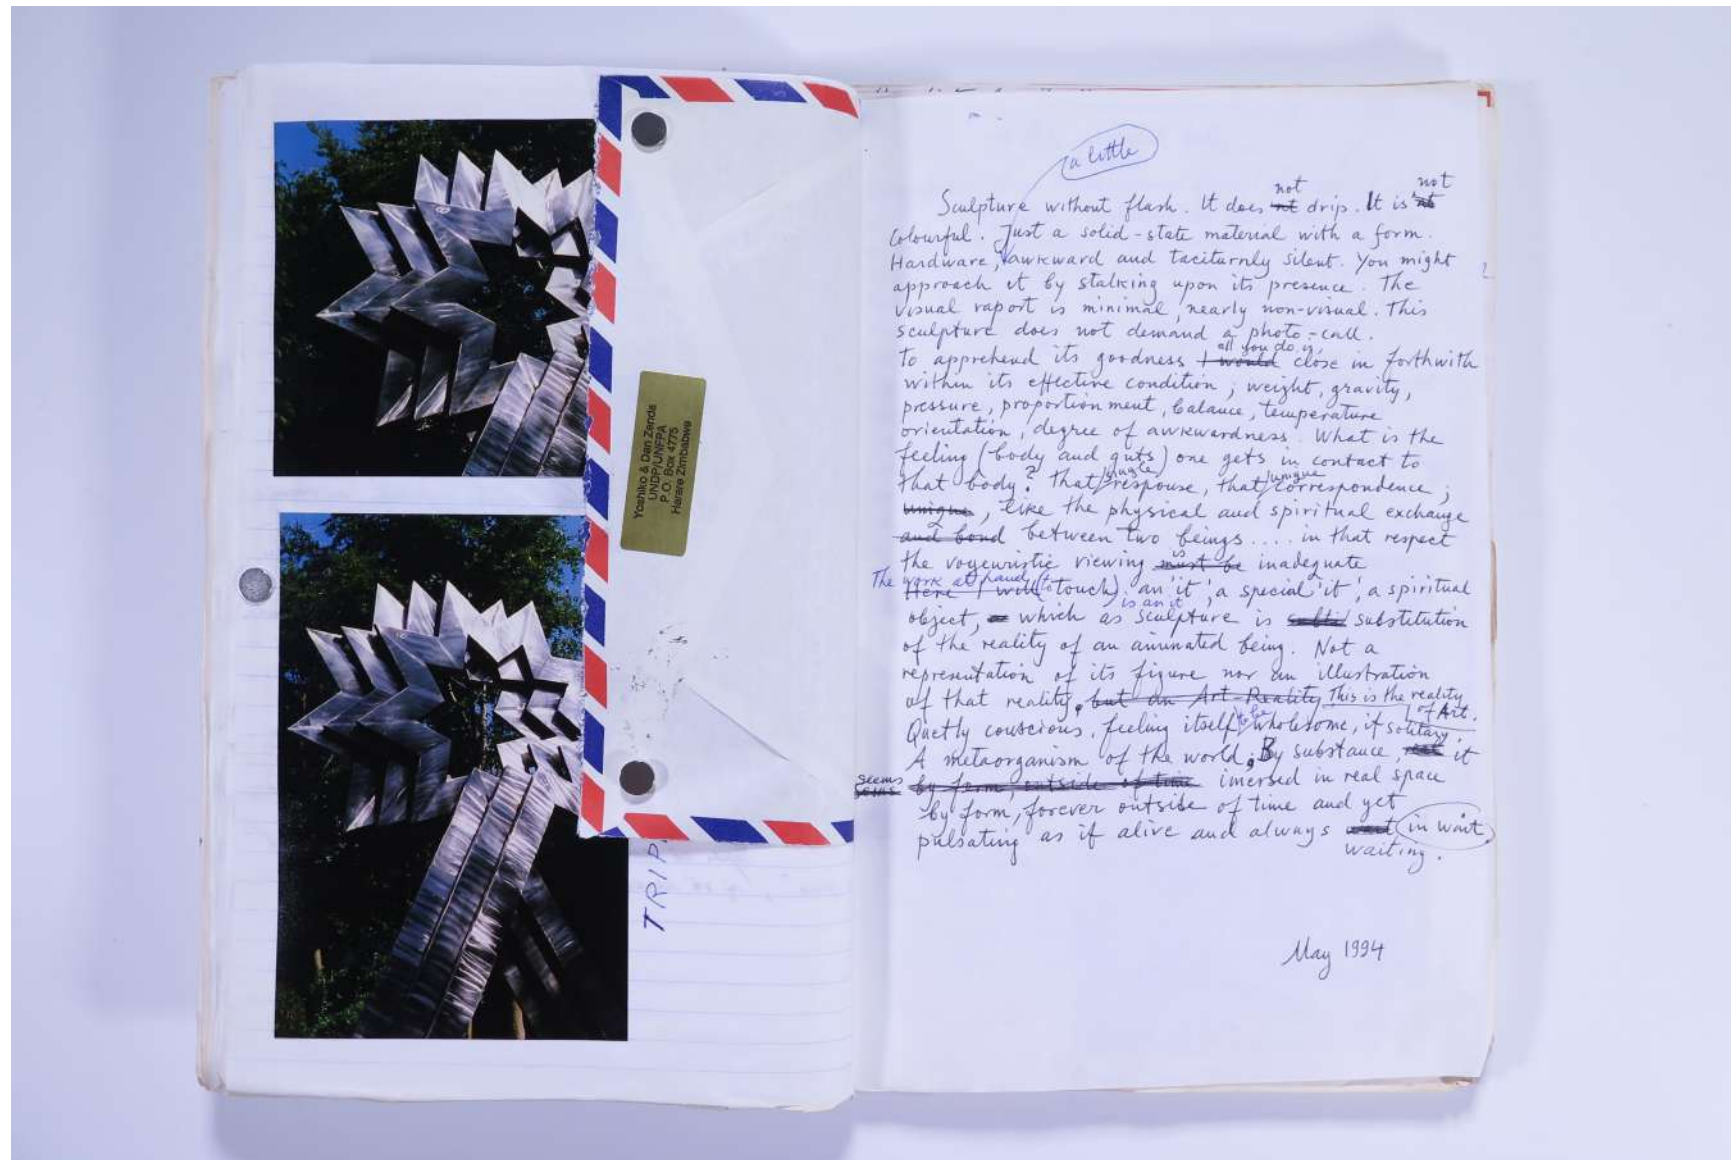 Yoshiko & Dan Zenda
UNDP/UNFPA
P.O. Box 4775
Harare Zimbabwe
TRIP
a little
not not
Sculpture without flash. It does nt drip. It is nt
Colourful. Just a solid-state material with a form.
Hardware, awkward and taciturnly silent. You might
approach it by stalking upon its presence. The
visual raport is minimal, nearly non-visual. This
sculpture does not demand a photo-call.
all you do is
To apprehend its goodness I would close in forthwith
within its effective condition; weight, gravity,
pressure, proportionment, balance, temperature
orientation, degree of awkwardness. What is the
feeling (body and guts) one gets in contact to
single unique
that body? That response, that correspondence;
unique, like the physical and spiritual exchange
and bond between two beings .... in that respect
is
the voyeuristic viewing must be inadequate
The work at hand
Here I will (to touch) an 'it', a special 'it', a spiritual
is an it
object, which as sculpture is substitution
of the reality of an animated being. Not a
representation of its figure nor an illustration
of that reality, but an Art-Reality This is the reality
of Art.
Quetly conscious, feeling itself to be wholesome, if solitary.
A metaorganism of the world. By substance, it
seems by form, outside of time imersed in real space
by form, forever outside of time and yet
pulsating as if alive and always wait in wait
waiting.
May 1994